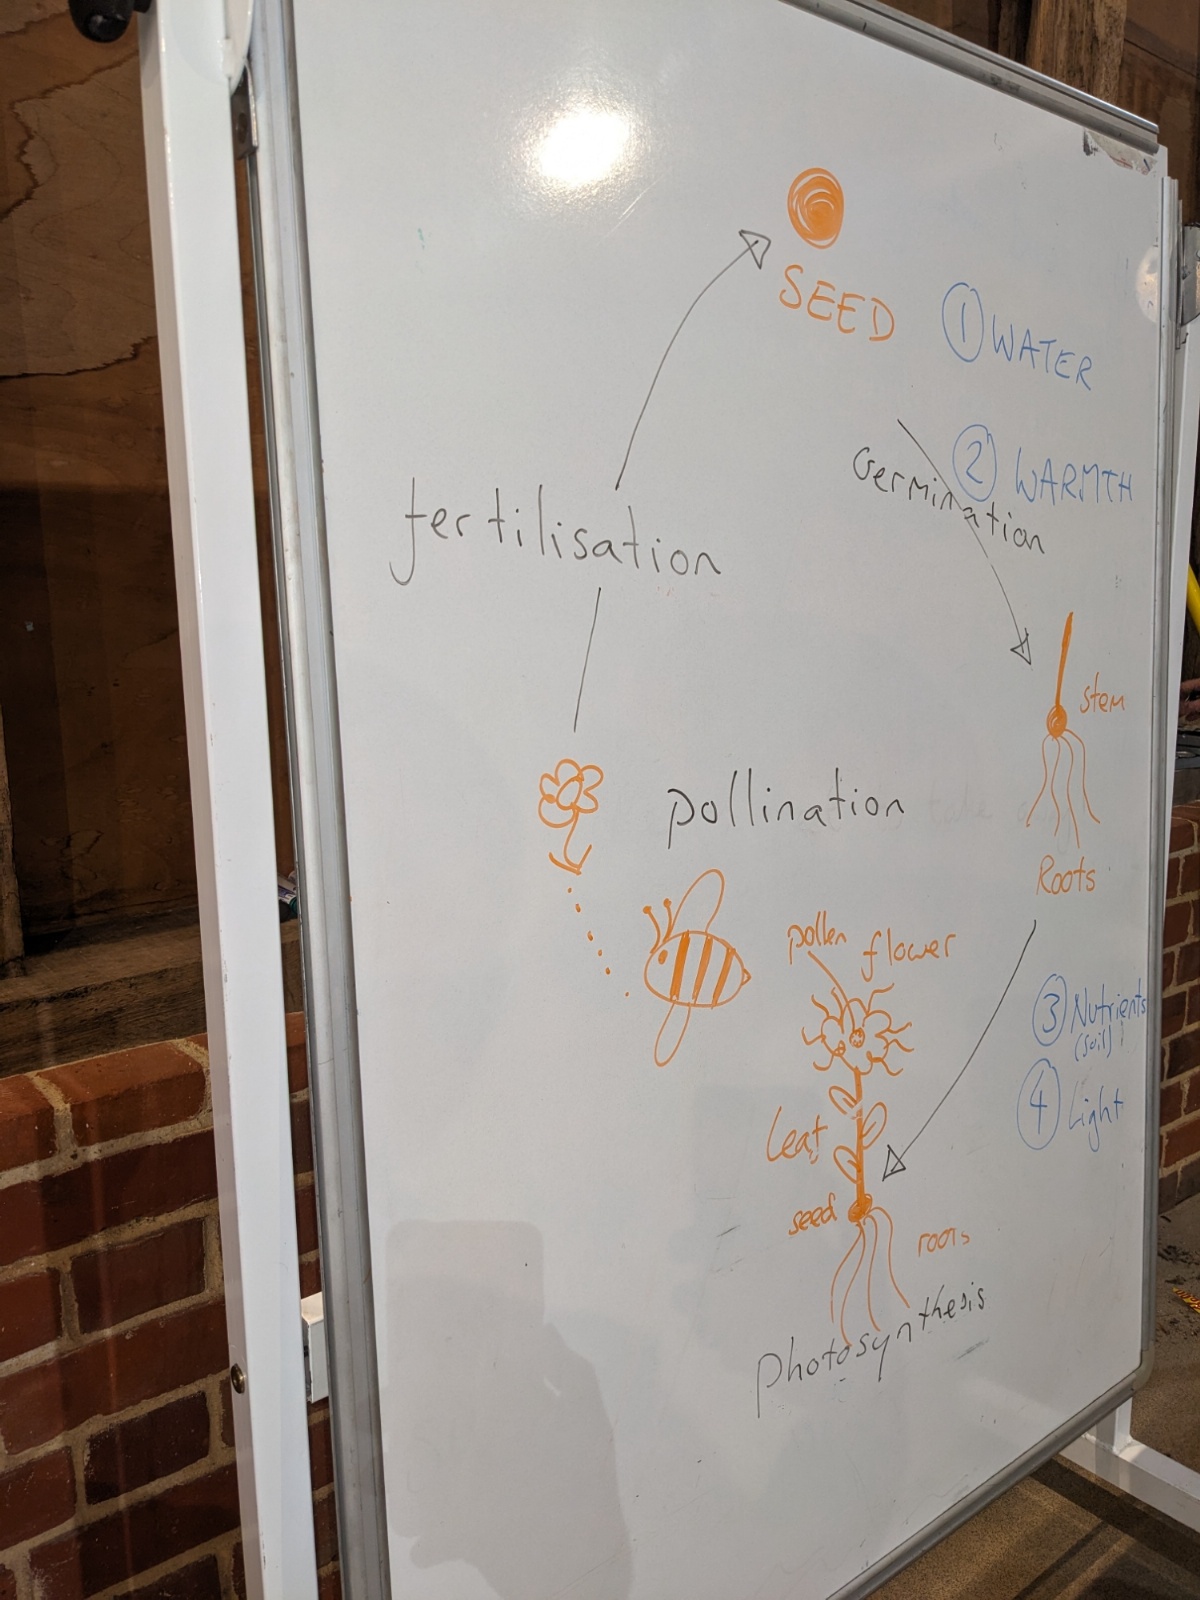 SEED
① WATER
② WARMTH
Germination
fertilisation
stem
pollination
Roots
pollen
flower
③ Nutrients
(soil)
④ Light
leaf
seed
roots
photosynthesis